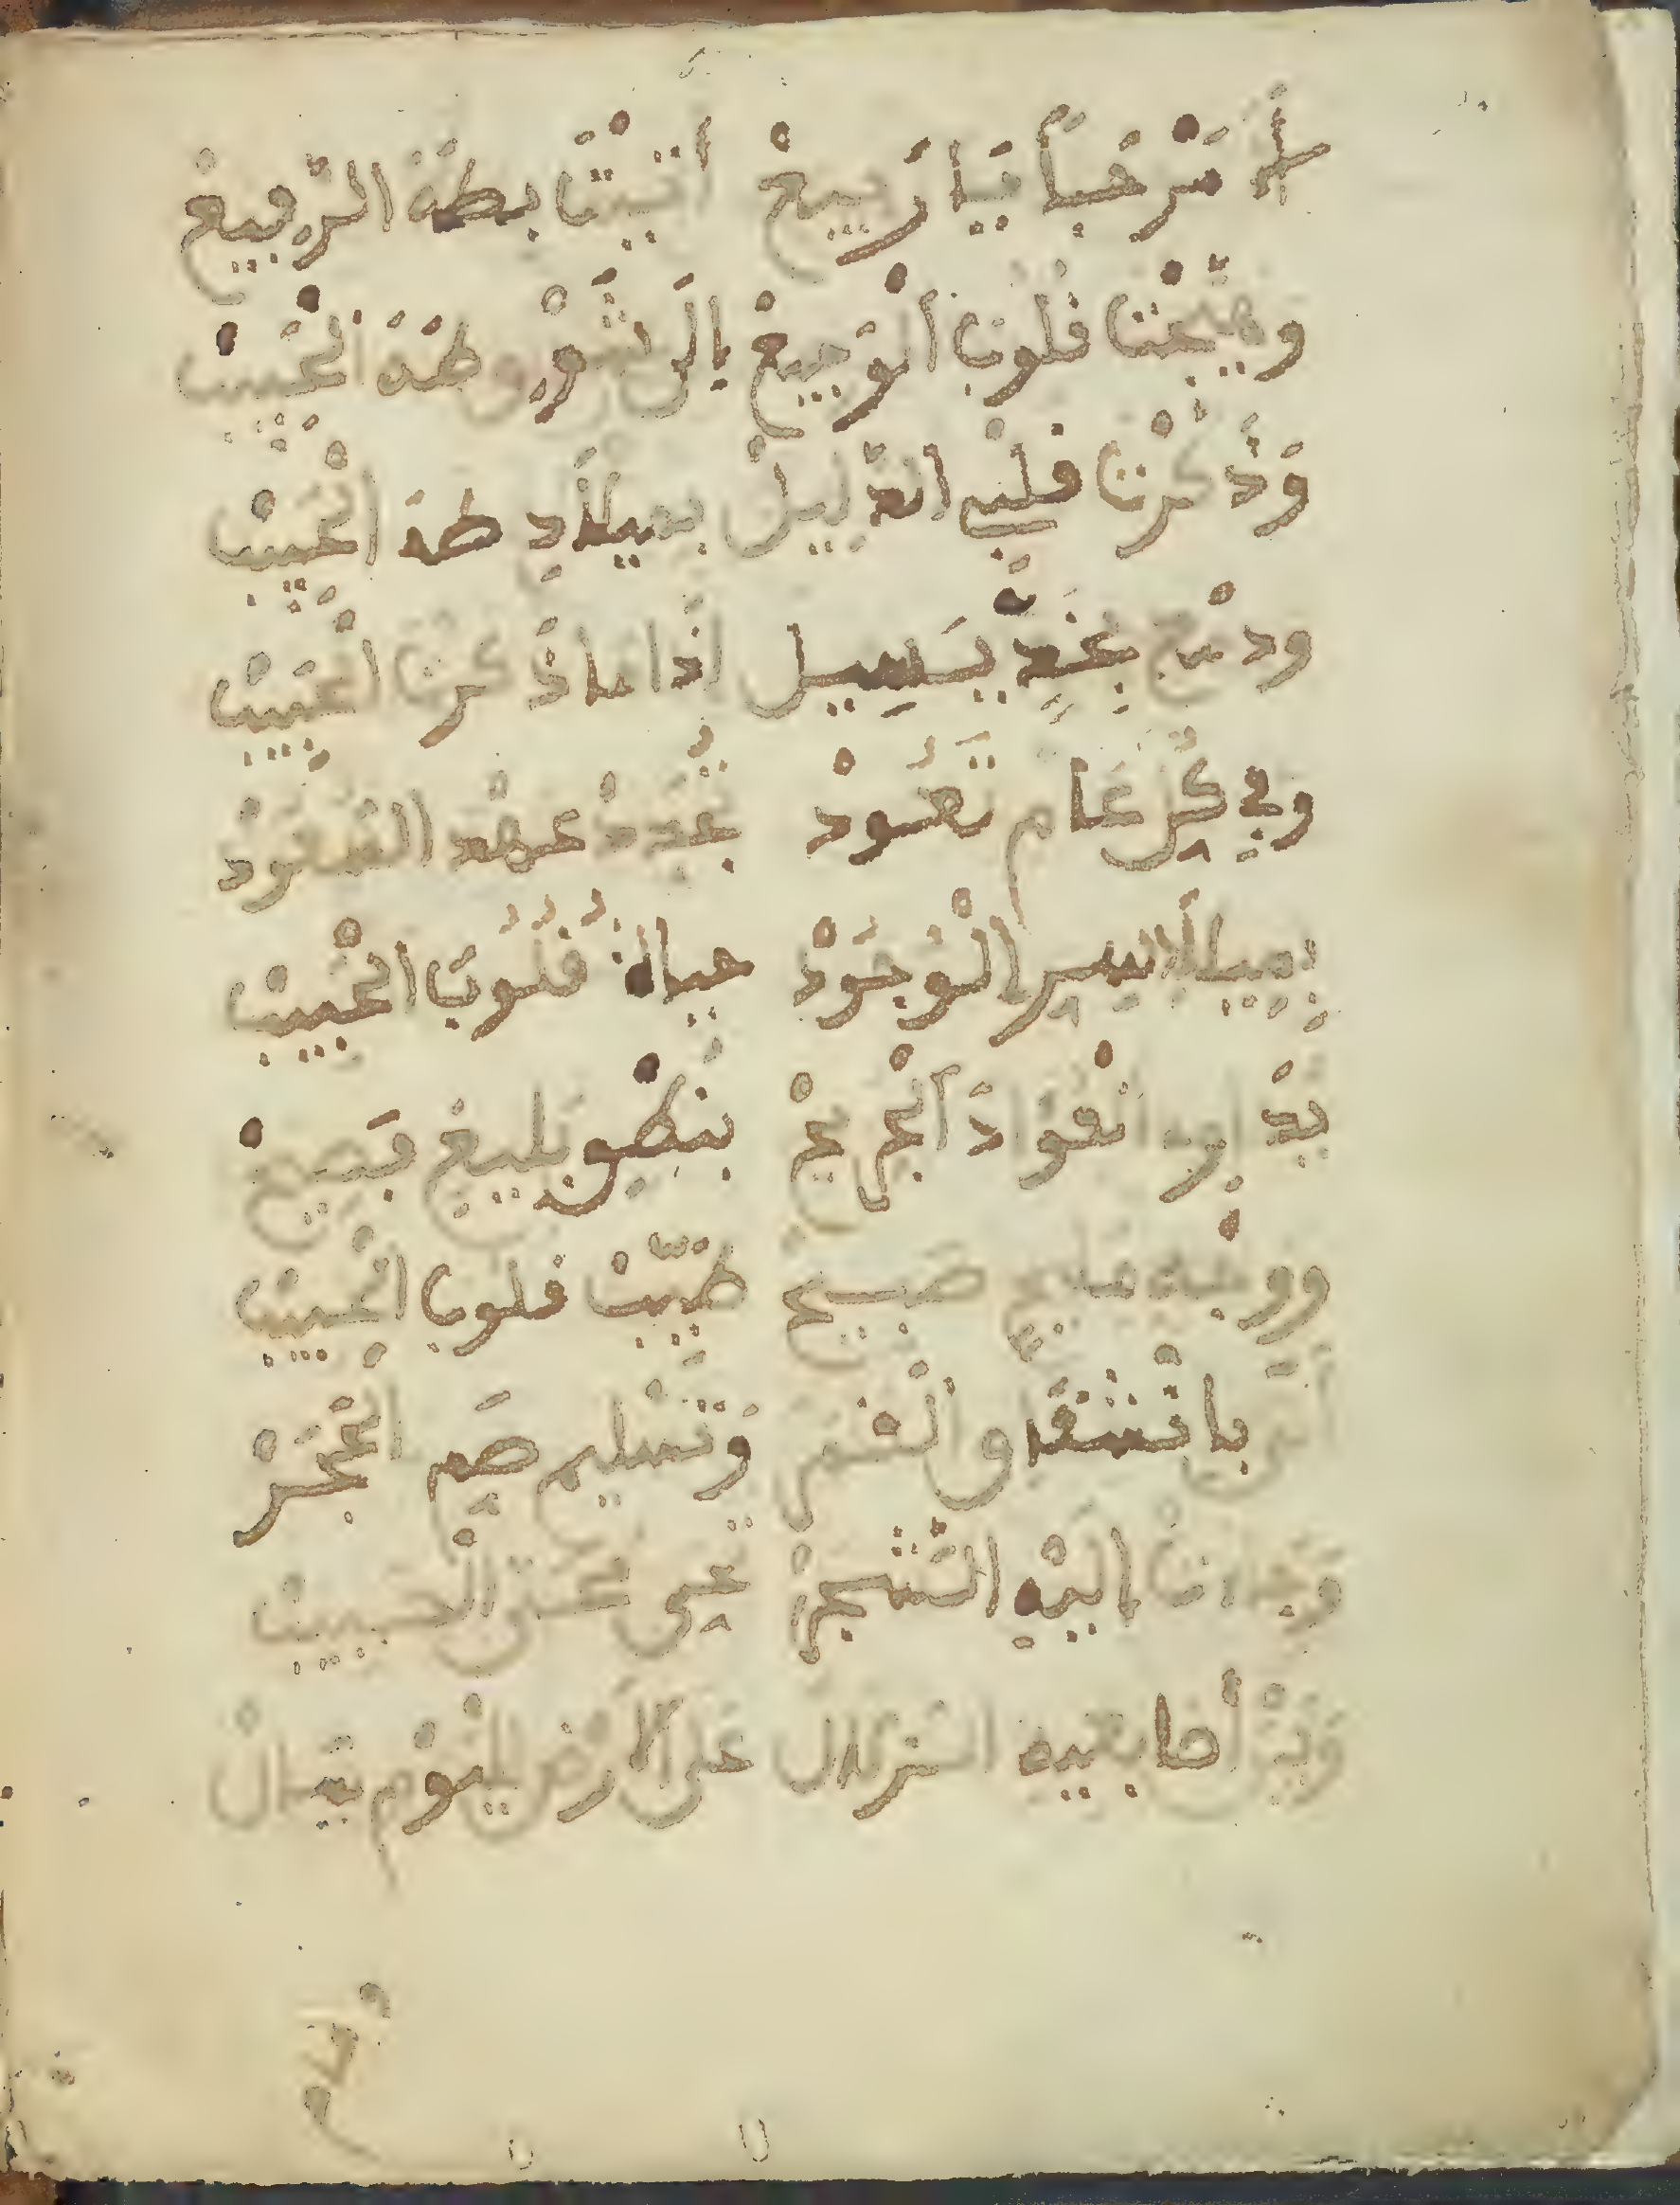 أَلَا مَرْحَبًا يَا رَبِيعْ أَتَيْتَ بِطَهَ الرَّفِيعْ
وهيّجْت قلوب الْوَجِيعْ إِلَى شَوْق طَهَ الْحَبِيبْ
وَذَكَّرْت قلبي الذّلِيلْ بميلَادِ طَهَ الْحَبِيبْ
ودمْع بِخَدِّ يَسِيل اذَا مَا ذَكَرْتَ الْحَبِيبْ
وفِي كُلِّ عَام تَعُودْ تُجَدّدْ عهْد السّعُودْ
بِمِيلَادِ سِرِّ الْوُجُودْ حياةُ قُلُوبَ الْحَبِيبْ
يدَاوِي الْفُؤَادَ الْجَرِيحْ بنُطْقٍ بَلِيغٍ فَصِيحْ
ووجْهٍ مَلِيحٍ صَبِيحْ طَبِيبْ قلوب الْحَبِيبْ
أَتَى بانْشقَاق الْقَمَرْ وَتَسْلِيم صُمِّ الْحَجَرْ
وَجَاءتْ إِلَيْهِ الشَّجَرْ تَحِي الْحَبِيبْ
وَبَيْنَ أصَابعيهِ الزلَالْ عَلَى الْأَرْض لِلْيَوْم سَالْ